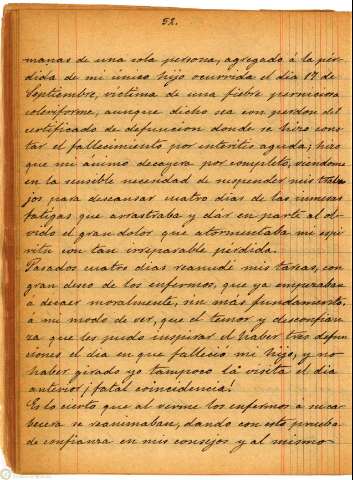 52.
manas de una sola persona, agregado á la pér-
dida de mi único hijo ocurrida el dia 17 de
Septiembre, víctima de una fiebre perniciosa
coleriforme, aunque dicho sea con perdon del
certificado de defuncion donde se hizo cons-
tar el fallecimiento por enteritis aguda; hizo
que mi ánimo decayera por completo, viendome
en la sensible necesidad de suspender mis traba-
jos para descansar cuatro dias de las inmensas
fatigas que arrastraba y dár en parte al ol-
vido el gran dolor que atormentaba mi espi-
ritu con tan irreparable pérdida.
Pasados cuatro dias reanudé mis tareas, con
gran deseo de los enfermos, que ya empezaban
á decaer moralmente, sin más fundamento,
á mi modo de ver, que el temor y desconfian-
za que les pudo inspirar el haber tres defun-
ciones el dia en que falleció mi hijo, y no
haber girado yo tampoco la visita el dia
anterior ¡fatal coincidencia!
Es lo cierto que al verme los enfermos á su ca-
becera se reanimaban, dando con esto prueba
de confianza en mis consejos y al mismo